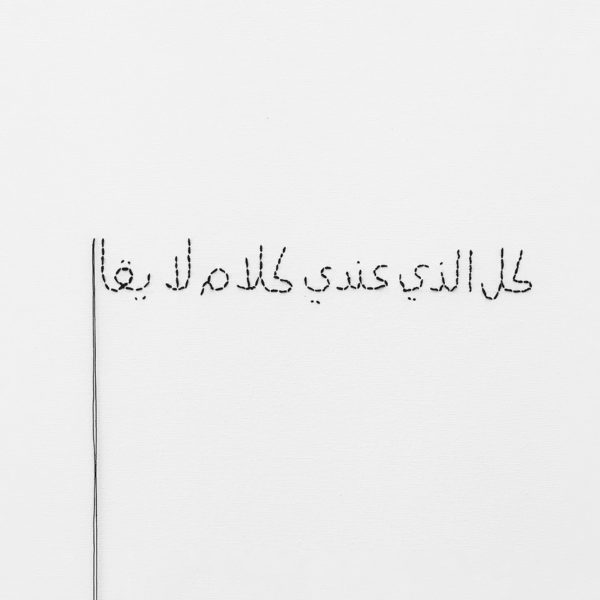 كل الذي عندي كلام لا يقا